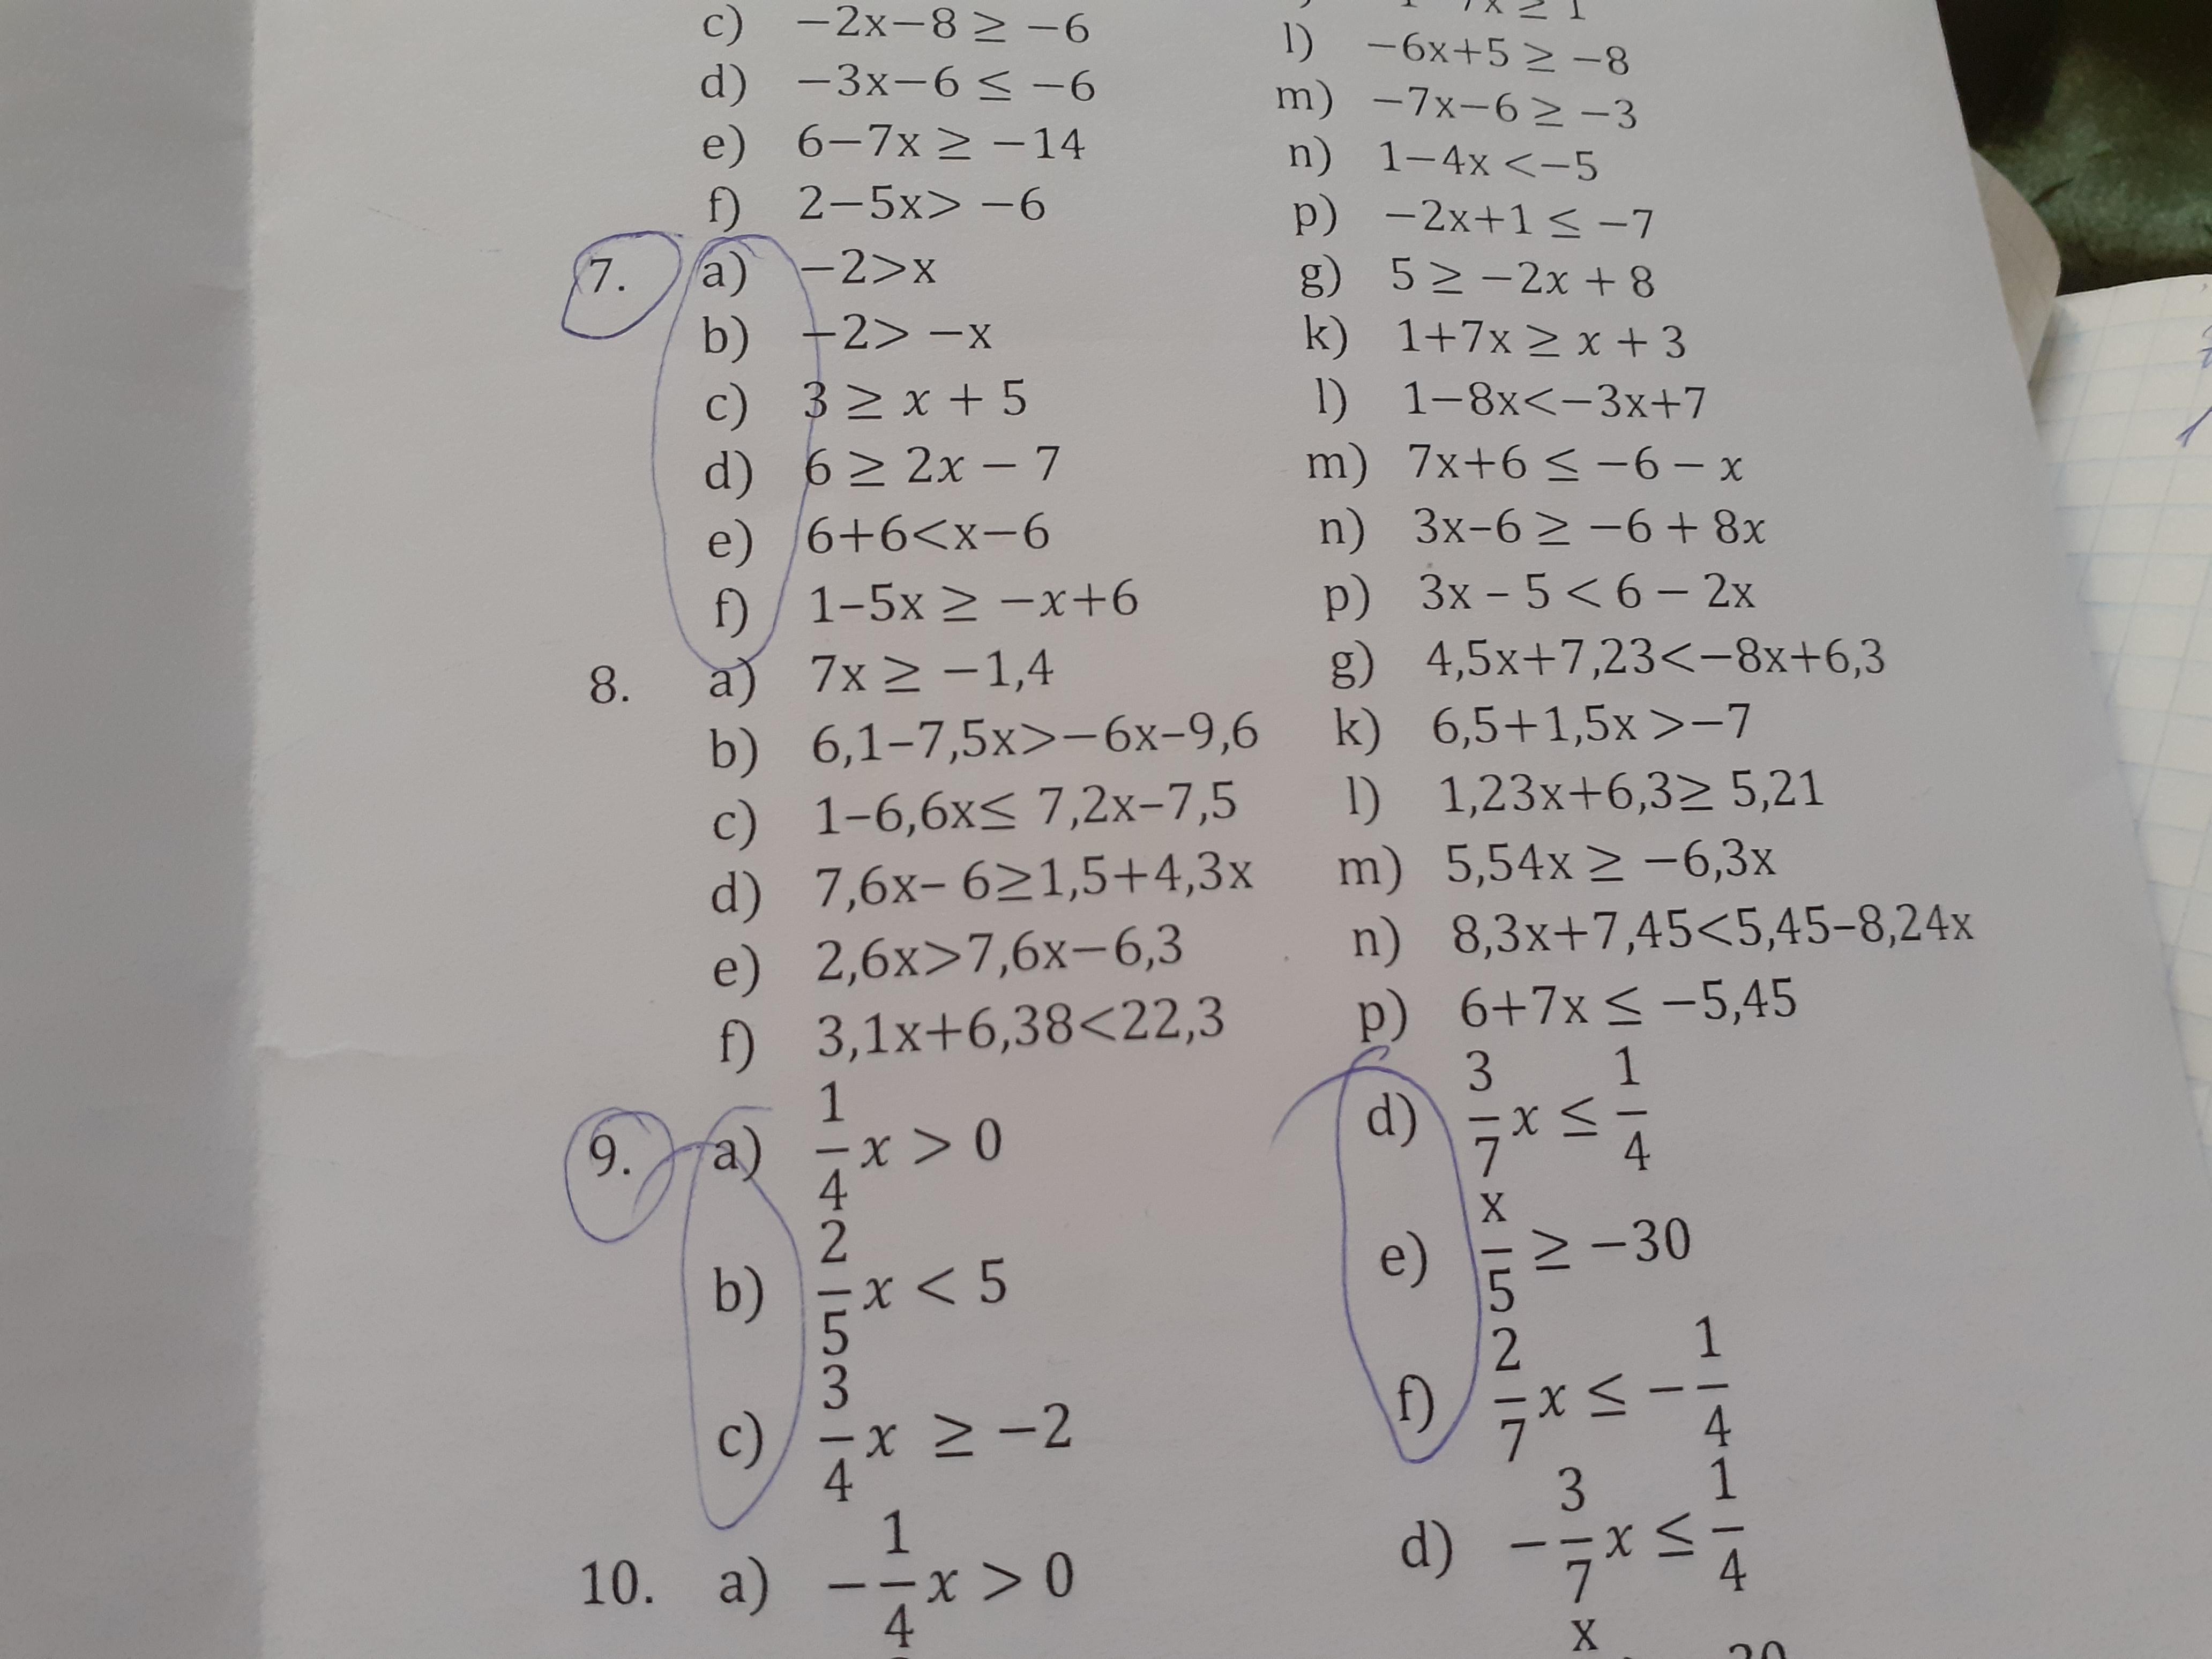 c) −2x−8 ≥ −6
l) −6x+5 ≥ −8
d) −3x−6 ≤ −6
m) −7x−6 ≥ −3
e) 6−7x ≥ −14
n) 1−4x <−5
f) 2−5x> −6
p) −2x+1 ≤ −7
7. a) −2>x
g) 5 ≥ −2x + 8
b) −2> −x
k) 1+7x ≥ x + 3
c) 3 ≥ x + 5
l) 1−8x<−3x+7
d) 6 ≥ 2x − 7
m) 7x+6 ≤ −6 − x
e) 6+6<x−6
n) 3x-6 ≥ −6 + 8x
f) 1−5x ≥ −x+6
p) 3x - 5 < 6 − 2x
8. a) 7x ≥ −1,4
g) 4,5x+7,23<−8x+6,3
b) 6,1−7,5x>−6x−9,6
k) 6,5+1,5x >−7
c) 1−6,6x≤ 7,2x−7,5
l) 1,23x+6,3≥ 5,21
d) 7,6x− 6≥1,5+4,3x
m) 5,54x ≥ −6,3x
e) 2,6x>7,6x−6,3
n) 8,3x+7,45<5,45−8,24x
f) 3,1x+6,38<22,3
p) 6+7x ≤ −5,45
9. a) 1/4 x > 0
d) 3/7 x ≤ 1/4
b) 2/5 x < 5
e) x/5 ≥ −30
c) 3/4 x ≥ −2
f) 2/7 x ≤ −1/4
10. a) −1/4 x > 0
d) −3/7 x ≤ 1/4
x